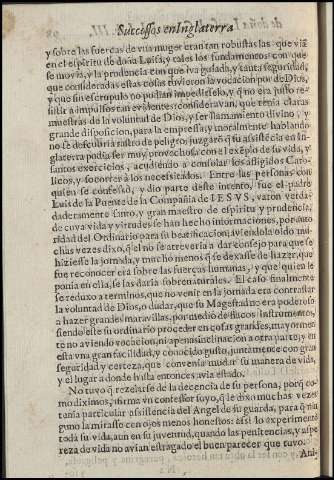 Successos en Inglaterra
y sobre las fuerças de vna muger eran tan robustas las que vía
en el espiritu de doña Luisa, y tales los fundamentos con que
se mouia, y la prudencia con que iva guiada, y tanta seguridad,
que consideradas estas cosas tuuieron la vocacion por de Dios,
y que sin escrupulo no podian impedirselo, y q no era justo re-
sistir a impulsos tan euidentes: considerauan, que tenia claras
muestras de la voluntad de Dios, y ser llamamiento diuino, y
grande disposicion, para la empressa, y moralmente hablando
no se descubria rastro de peligro; juzgarõ q su assistẽcia en In-
glaterra podia ser muy prouechosa, con el exẽplo de su vida, y
santos exercicios, acudiendo a consolar los afligidos Cato-
licos, y socorrer a los necessitados. Entre las personas con
quien se confessò, y dio parte deste intento, fue el padre
Luis de la Puente de la Compañia de IESVS, varon verda-
daderamente santo, y gran maestro de espiritu y prudencia,
de cuya vida y virtudes se han hecho informaciones, por auto-
ridad del Ordinario para su beatificacion; auiendola oido mu-
chas vezes dixo, q̃ el no se atreueria a dar consejo para que se
hiziesse la jornada, y mucho menos q̃ se dexasse de hazer, que
fue reconocer era sobre las fuerças humanas, y que quien le
ponia en ella, se las daria sobrenaturales. El caso finalmente
se reduxo a terminos, que no venir en la jornada era contrastar
la voluntad de Dios, o dudar, que su Magestad no era poderoso
a hazer grandes marauillas, por medio de flacos instrumentos,
siendo este su ordinario proceder en cosas grandes, mayormen
te no auiendo vocacion, ni apenas inclinacion a otra parte; y en
esta vna gran facilidad, y conocido gusto, juntamente con gran
seguridad y certeza, que conuenia mudar su manera de vida,
y el lugar a donde hasta entonces auia estado.
No tuuo q̃ rezelarse de la decencia de su persona, porq̃ co-
mo diximos, afirma vn confessor suyo, q̃ le dixo muchas vezes
tenia particular assistencia del Angel de su guarda, para q̃ nin-
guno la mirasse con ojos menos honestos: assi lo experimentò
toda su vida, aun en su juuentud, quando las penitencias, y aspe
reza de vida no auian estragado el buen parecer que tuuo.
Ani-